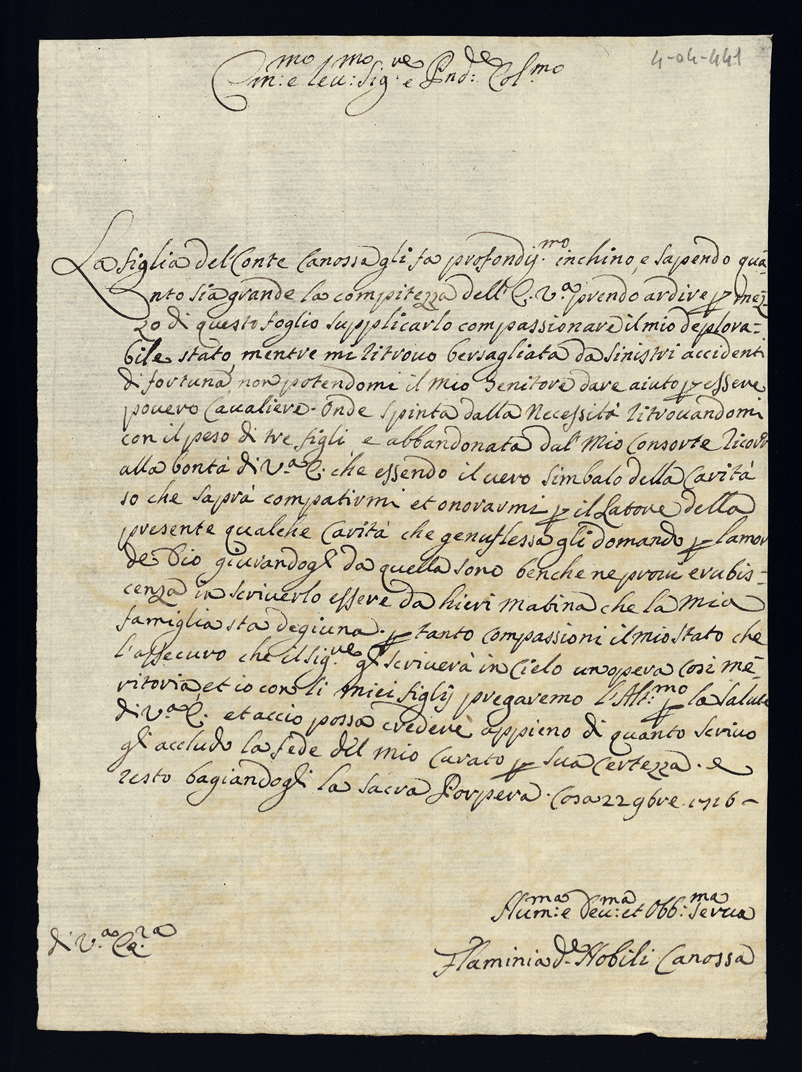 4-04-441
Em:mo e Rev:mo Sig:re e Pnd:de Col:mo
La figlia del Conte Canossa gli fa profondis:mo inchino, e sapendo quā-
nto sia grande la compitezza dell' E. V:a prendo ardire p mez-
zo di questo foglio supplicarlo compassionare il mio deplora-
bile stato, mentre mi ritrovo bersagliata da sinistri accidenti
di fortuna, non potendomi il mio Genitore dare aiuto p essere
povero Cavaliere. Onde spinta dalla Necessità ritrovandomi
con il peso di tre figli e abbandonata dal Mio Consorte ricorro
alla bontà di V:a E. che essendo il vero simbalo della Carità
so che saprà compatirmi et onorarmi p il Latore della
presente qualche Carità che genuflessa gli domando p lamor
de Dio giurandogl' da quella sono benche ne provi erubis-
cenza in scriverlo essere da hieri matina che la Mia
famiglia sta degiuna. p tanto compassioni il mio stato che
l'assecuro che il Sig:re gl' scriverà in Cielo un opera cosi me-
ritoria et io con li miei figlij pregaremo l'Alt:mo p la salute
di V:a E. et accio possa credere appieno di quanto scrivo
gl' accludo la fede del mio Curato p sua Certezza. e
resto bagiandogli la sacra Porpera. Cosa 22 9bre 1716-
Hum:ma e Dev:ma et Obb:ma serva
di V:a Ea:za
Flaminia de Nobili Canossa